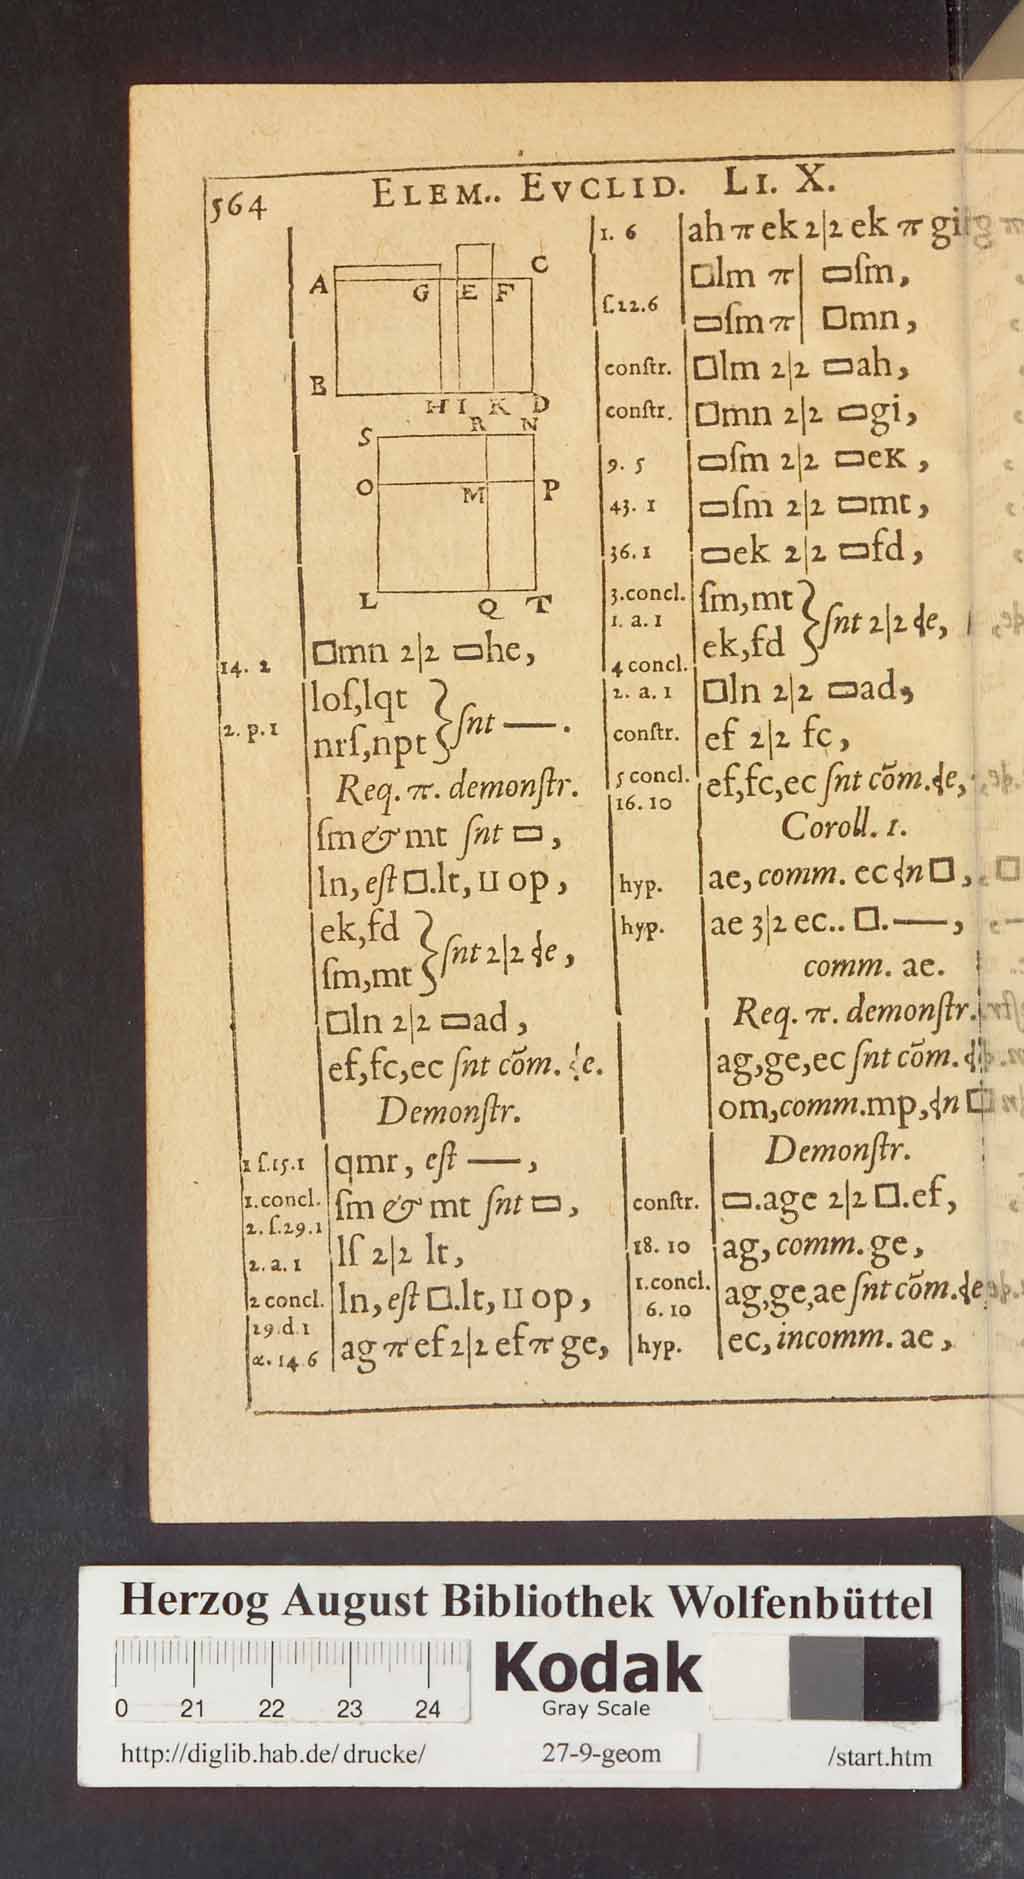 564 ELEM.. EVCLID. LI. X.
A G E F C
B H I K D
S R N
O M P
L Q T
14. 2 □mn 2|2 ▭he,
loſ,lqt
2. p. 1 nrſ,npt } ſnt —.
Req. π. demonſtr.
ſm & mt ſnt ▭,
ln, eſt □.lt, II op,
ek,fd
ſm,mt } ſnt 2|2 ꝗe,
□ln 2|2 ▭ad,
ef,fc,ec ſnt cōm. ꝗe.
Demonſtr.
1 ſ.15.1 qmr, eſt —,
1.concl. ſm & mt ſnt ▭,
2. ſ.29.1
2. a. 1 lſ 2|2 lt,
2 concl. ln, eſt □.lt, II op,
29.d.1
α. 14.6 ag π ef 2|2 ef π ge,
1. 6 ah π ek 2|2 ek π gi
□lm π | ▭ſm,
ſ.22.6 ▭ſm π | □mn,
conſtr. □lm 2|2 ▭ah,
conſtr. □mn 2|2 ▭gi,
9. 5 ▭ſm 2|2 ▭eK,
43. 1 ▭ſm 2|2 ▭mt,
36. 1 ▭ek 2|2 ▭fd,
3.concl. ſm,mt
1. a. 1 ek,fd } ſnt 2|2 ꝗe,
4 concl.
2. a. 1 □ln 2|2 ▭ad,
conſtr. ef 2|2 fc,
5 concl. ef,fc,ec ſnt cōm. ꝗe,
16. 10
Coroll. 1.
hyp. ae, comm. ec ꝗn □,
hyp. ae 3|2 ec.. □.—,
comm. ae.
Req. π. demonſtr.
ag,ge,ec ſnt cōm.
om,comm.mp, ꝗn □
Demonſtr.
conſtr. ▭.age 2|2 □.ef,
18. 10 ag, comm. ge,
1.concl. ag,ge,ae ſnt cōm. ꝗe
6. 10
hyp. ec, incomm. ae,
Herzog August Bibliothek Wolfenbüttel
0 21 22 23 24
Kodak
Gray Scale
http://diglib.hab.de/drucke/ 27-9-geom /start.htm